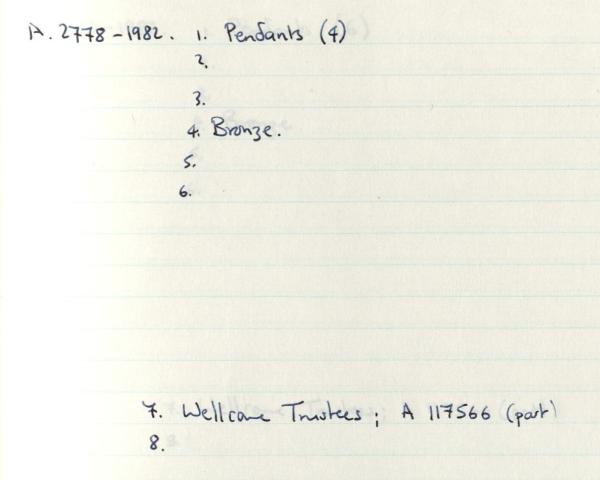 A. 2778-1982. 1. Pendants (4)
2.
3.
4. Bronze.
5.
6.
7. Wellcome Trustees; A 117566 (part)
8.